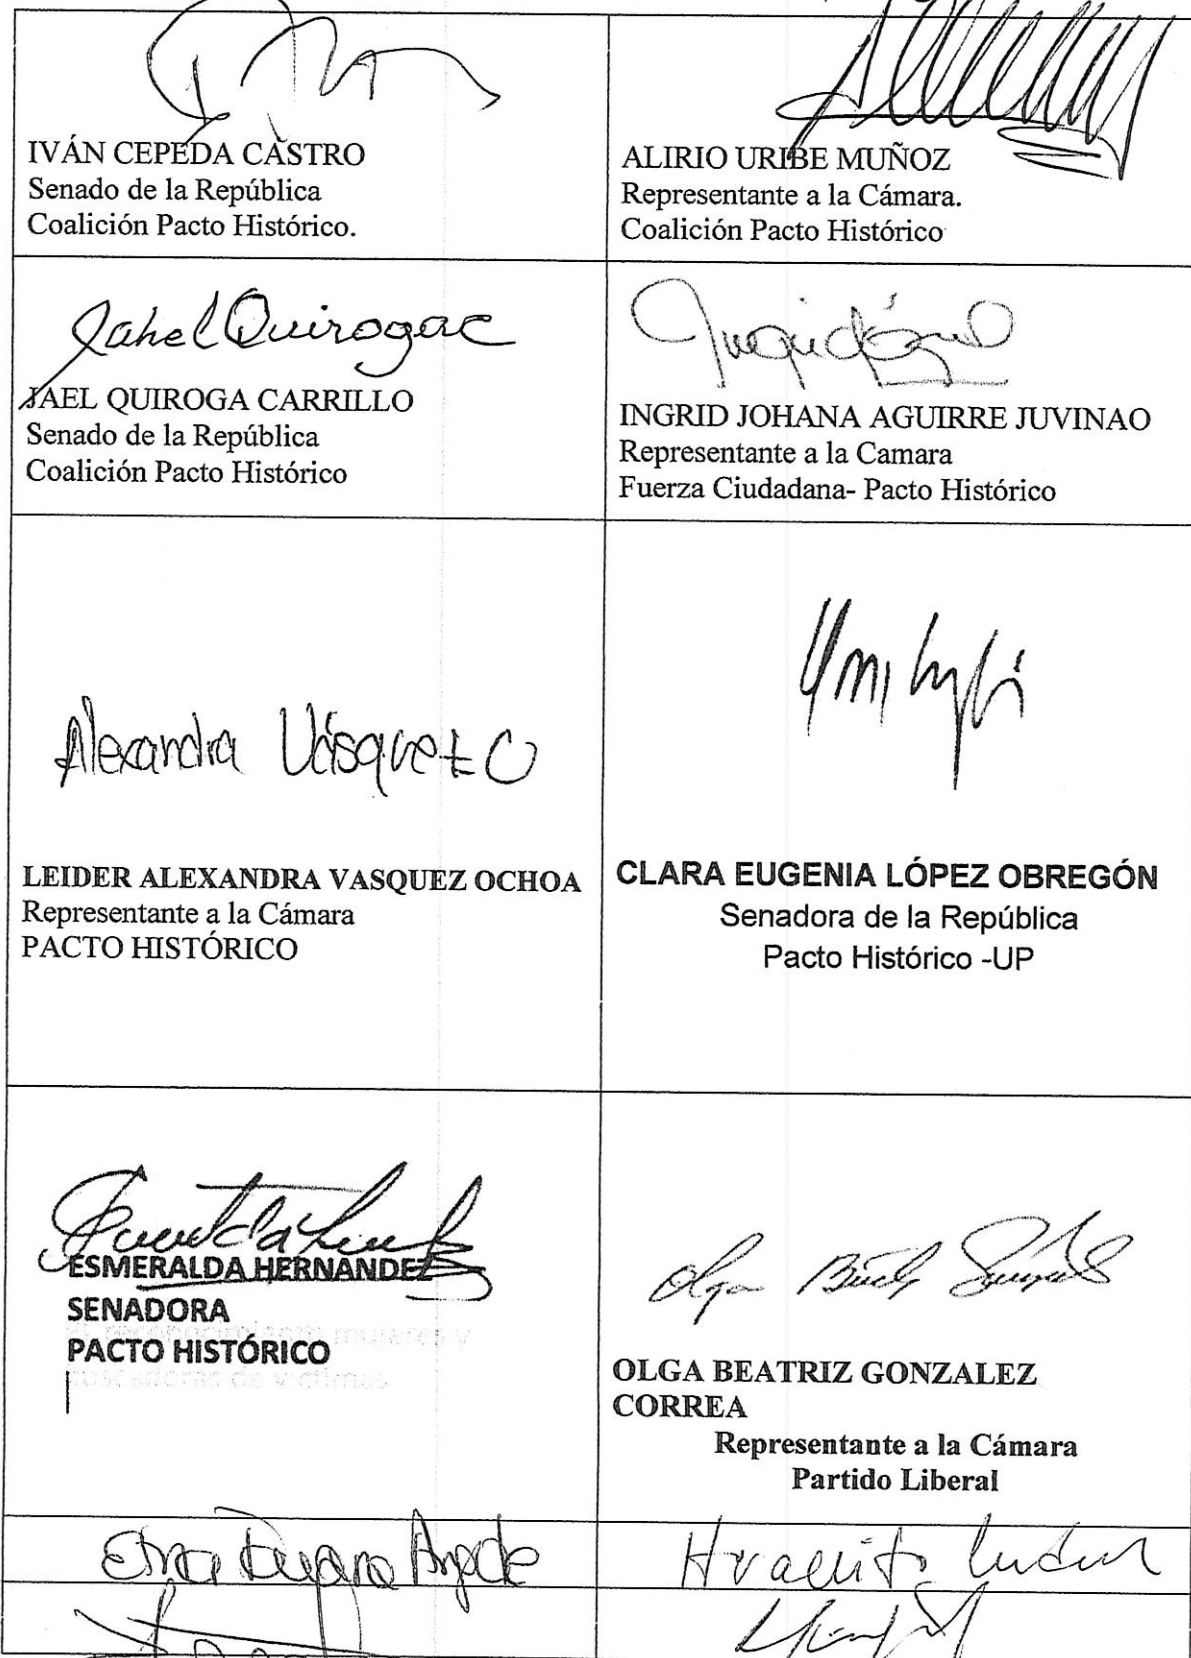 IVÁN CEPEDA CASTRO
Senado de la República
Coalición Pacto Histórico.
ALIRIO URIBE MUÑOZ
Representante a la Cámara.
Coalición Pacto Histórico
Jahel Quirogac
JAEL QUIROGA CARRILLO
Senado de la República
Coalición Pacto Histórico
INGRID JOHANA AGUIRRE JUVINAO
Representante a la Camara
Fuerza Ciudadana- Pacto Histórico
Alexandra Vásquez O
LEIDER ALEXANDRA VASQUEZ OCHOA
Representante a la Cámara
PACTO HISTÓRICO
CLARA EUGENIA LÓPEZ OBREGÓN
Senadora de la República
Pacto Histórico -UP
ESMERALDA HERNANDEZ
SENADORA
PACTO HISTÓRICO
reconocimiento mujeres y
buscadoras de víctimas
Olga
OLGA BEATRIZ GONZALEZ
CORREA
Representante a la Cámara
Partido Liberal